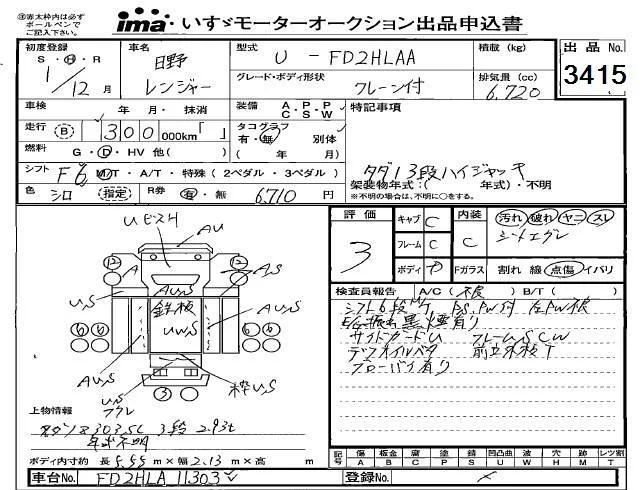 ※赤太枠内は必ず
ボールペンで
ご記入下さい。
ima いすゞモーターオークション出品申込書
初度登録 S・H・R 1/12月
車名 日野 レンジャー
型式 U - FD2HLAA
グレード・ボディ形状 クレーン付
積載 (kg)
排気量 (cc) 6,720
出品 No. 3415
車検 年 月・抹消
装備 A.C P.S P.W
特記事項
走行 (B) 300 000km「 」
タコグラフ 有・無 別体 ( 年 月)
燃料 G・D・HV 他( )
シフト F6 M/T・A/T・特殊 (2ペダル・3ペダル)
タダノ3段ハイジャッキ
架装物年式:( 年式)・不明
※不明の場合は、不明に○をする。
色 シロ (指定) R券 有・無 6,710 円
評価 3
キャブ C
フレーム C
ボディ P
内装 C
Fガラス
汚れ 破れ ヤニ スレ
シートエグレ
割れ 線 点傷 イバリ
検査員報告 A/C (不良 ) B/T ( )
シフト6段M/T P.S.PW付 左PW根
E/G 黒煙有り
サイドガードU フレームSCW
デフオイルベタ
ブローバイ有り
Uビスト
AU
⑫ ⑫
A
AS
U,S
AU,S
鉄板
UW,S
⑥ ⑥ ⑥ ⑥
AU,S
U,S
枠U,S
③
上物情報
タダノZ303SL 3段 2.93t
年式不明
ボディ内寸約 長 5.55 m×幅 2.13 m×高 m
記号 傷 A 板金 B 腐 C 塗 P 錆 S 凹凸曲 U 波 W 穴 H 跡 M 補 T レツ割
車台No. FD2HLA 11303
登録No.